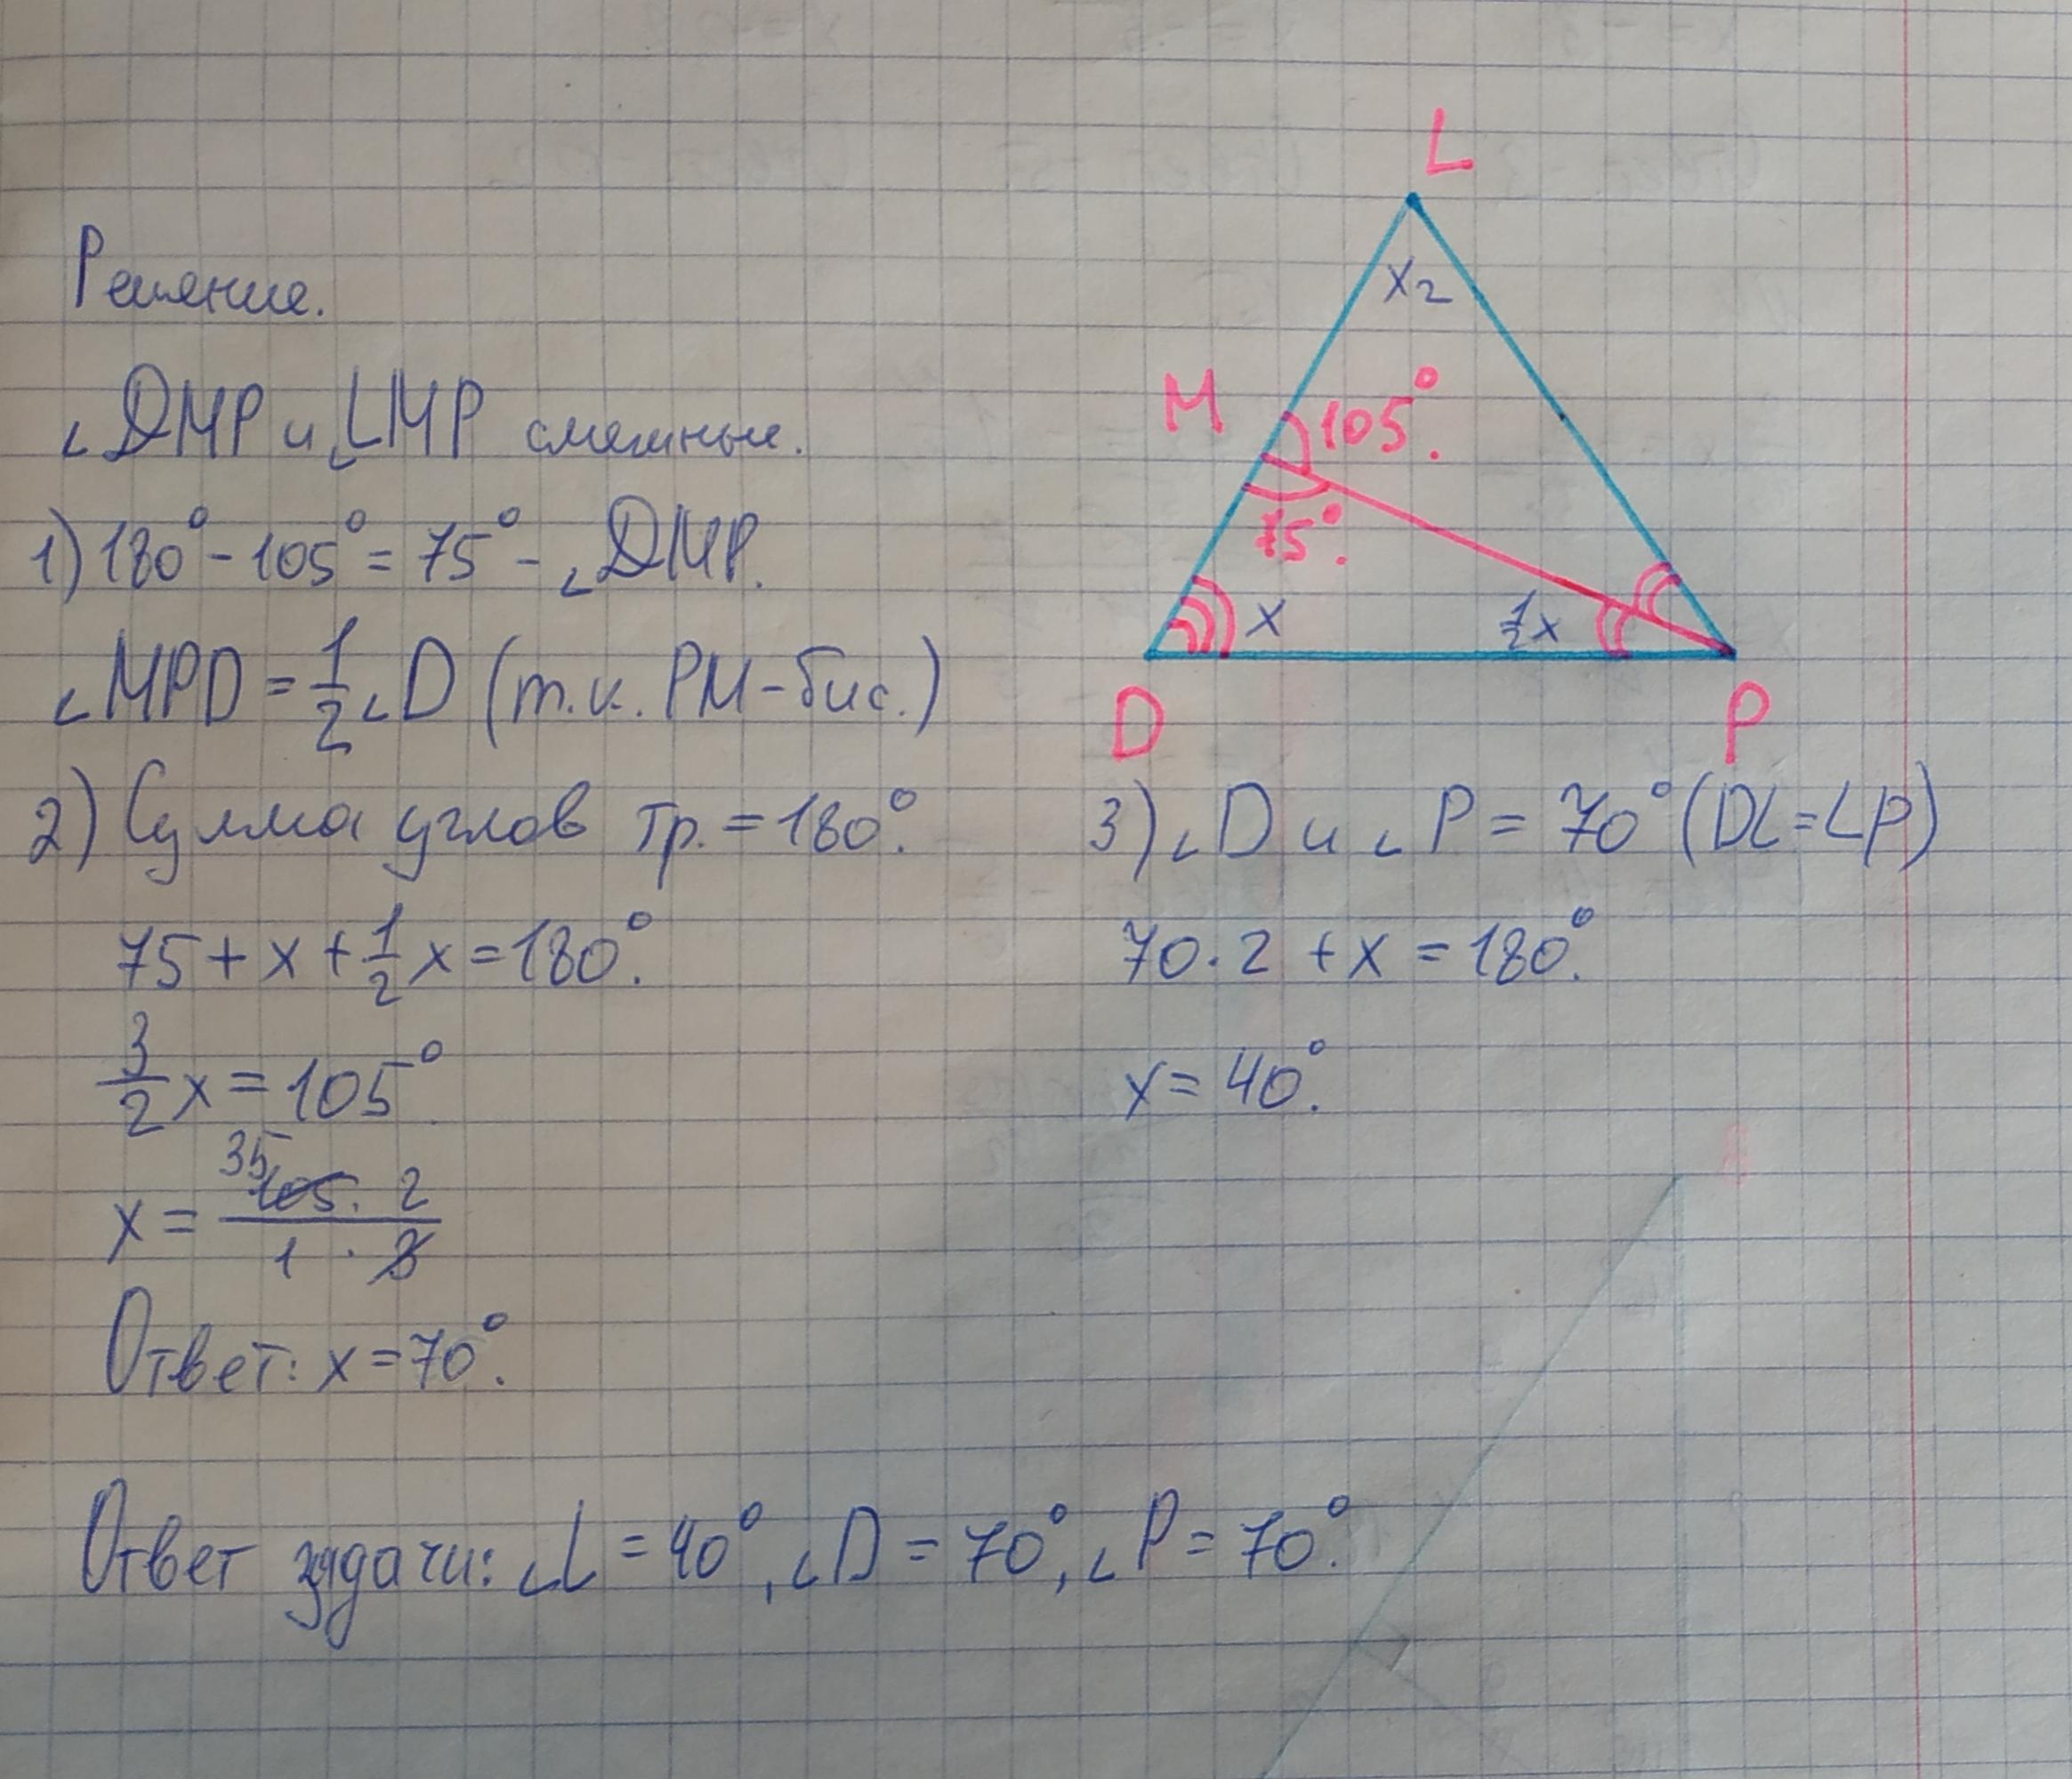 Решение.
∠DMP и ∠LMP смежные.
1) 180° - 105° = 75° - ∠DMP.
∠MPD = 1/2 ∠D (т.к. PM - бис.)
2) Сумма углов тр. = 180°.
75 + x + 1/2 x = 180°.
3/2 x = 105°
x = 35 105 · 2 / 1 · 3
Ответ: x = 70°.
L
x₂
M
105°.
75°.
x
1/2 x
D
P
3) ∠D и ∠P = 70° (DL = LP)
70 · 2 + x = 180°.
x = 40°.
Ответ задачи: ∠L = 40°, ∠D = 70°, ∠P = 70°.